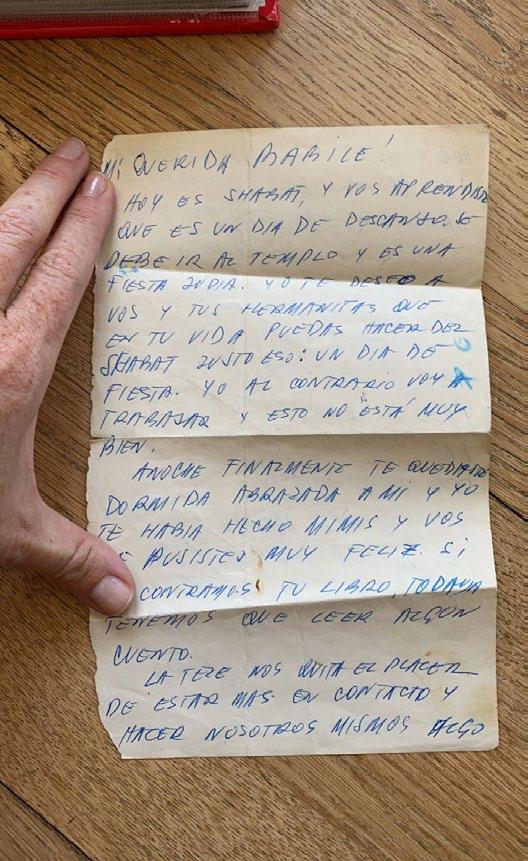 MI QUERIDA BABILE!
HOY ES SHABAT, Y VOS APRENDAS
QUE ES UN DIA DE DESCANSO. SE
DEBE IR AL TEMPLO Y ES UNA
FIESTA JUDIA. YO TE DESEO A
VOS Y TUS HERMANITAS QUE
EN TU VIDA PUEDAS HACER DEL
SHABAT JUSTO ESO: UN DIA DE
FIESTA. YO AL CONTRARIO VOY A
TRABAJAR Y ESTO NO ESTÁ MUY
BIEN.
ANOCHE FINALMENTE TE
DORMIDA ABRAZADA A MI Y YO
TE HABIA HECHO MIMIS Y VOS
PUSISTES MUY FELIZ. SI
CONTRAMOS TU LIBRO, TODAVIA
TENEMOS QUE LEER ALGUN
CUENTO.
LA TELE NOS QUITA EL PLACER
DE ESTAR MAS EN CONTACTO Y
HACER NOSOTROS MISMOS ALGO